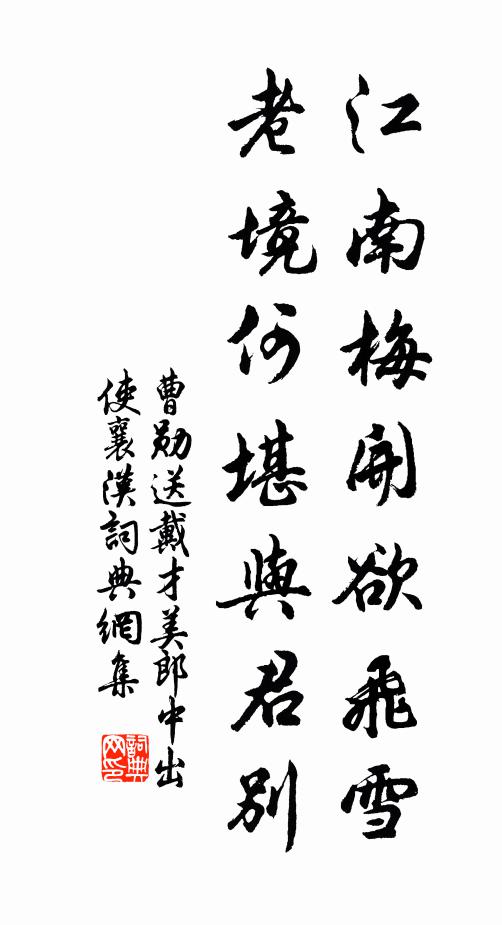 江南梅開欲飛雪
老境何堪與君別
曹勛送戴才美郎中出
使襄漢詞典網集
詞典
网印